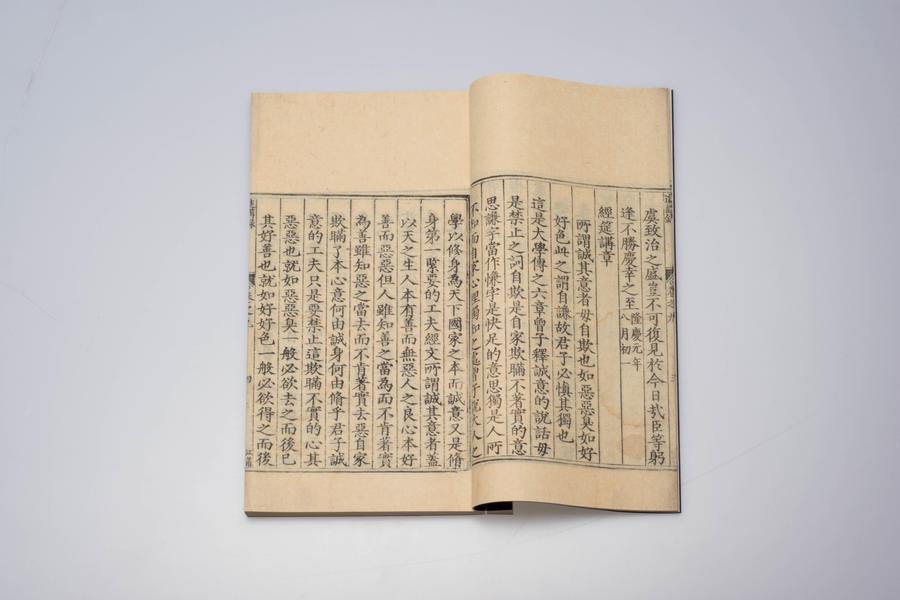 虞致治之盛豈不可復見於今日哉臣等躬
逢不勝慶幸之至隆慶元年
八月初一
經筵講章
所謂誠其意者毋自欺也如惡惡臭如好
好色此之謂自謙故君子必慎其獨也
這是大學傳之六章曾子釋誠意的說話毋
是禁止之詞自欺是自家欺瞞不著實的意
思謙字當作慊字是快足的意思獨是人所
不知而自家心裡獨知之處曾子說
學以修身為天下國家之本而誠意又是脩
身第一緊要的工夫經文所謂誠其意者蓋
以天之生人本有善而無惡人之良心本好
善而惡惡但人雖知善之當為而不肯著實
為善雖知惡之當去而不肯著實去惡自家
欺瞞了本心意何由誠身何由脩乎君子誠
意的工夫只是要禁止這欺瞞不實的心其
惡惡也就如惡惡臭一般必欲去之而後已
其好善也就如好好色一般必欲得之而後